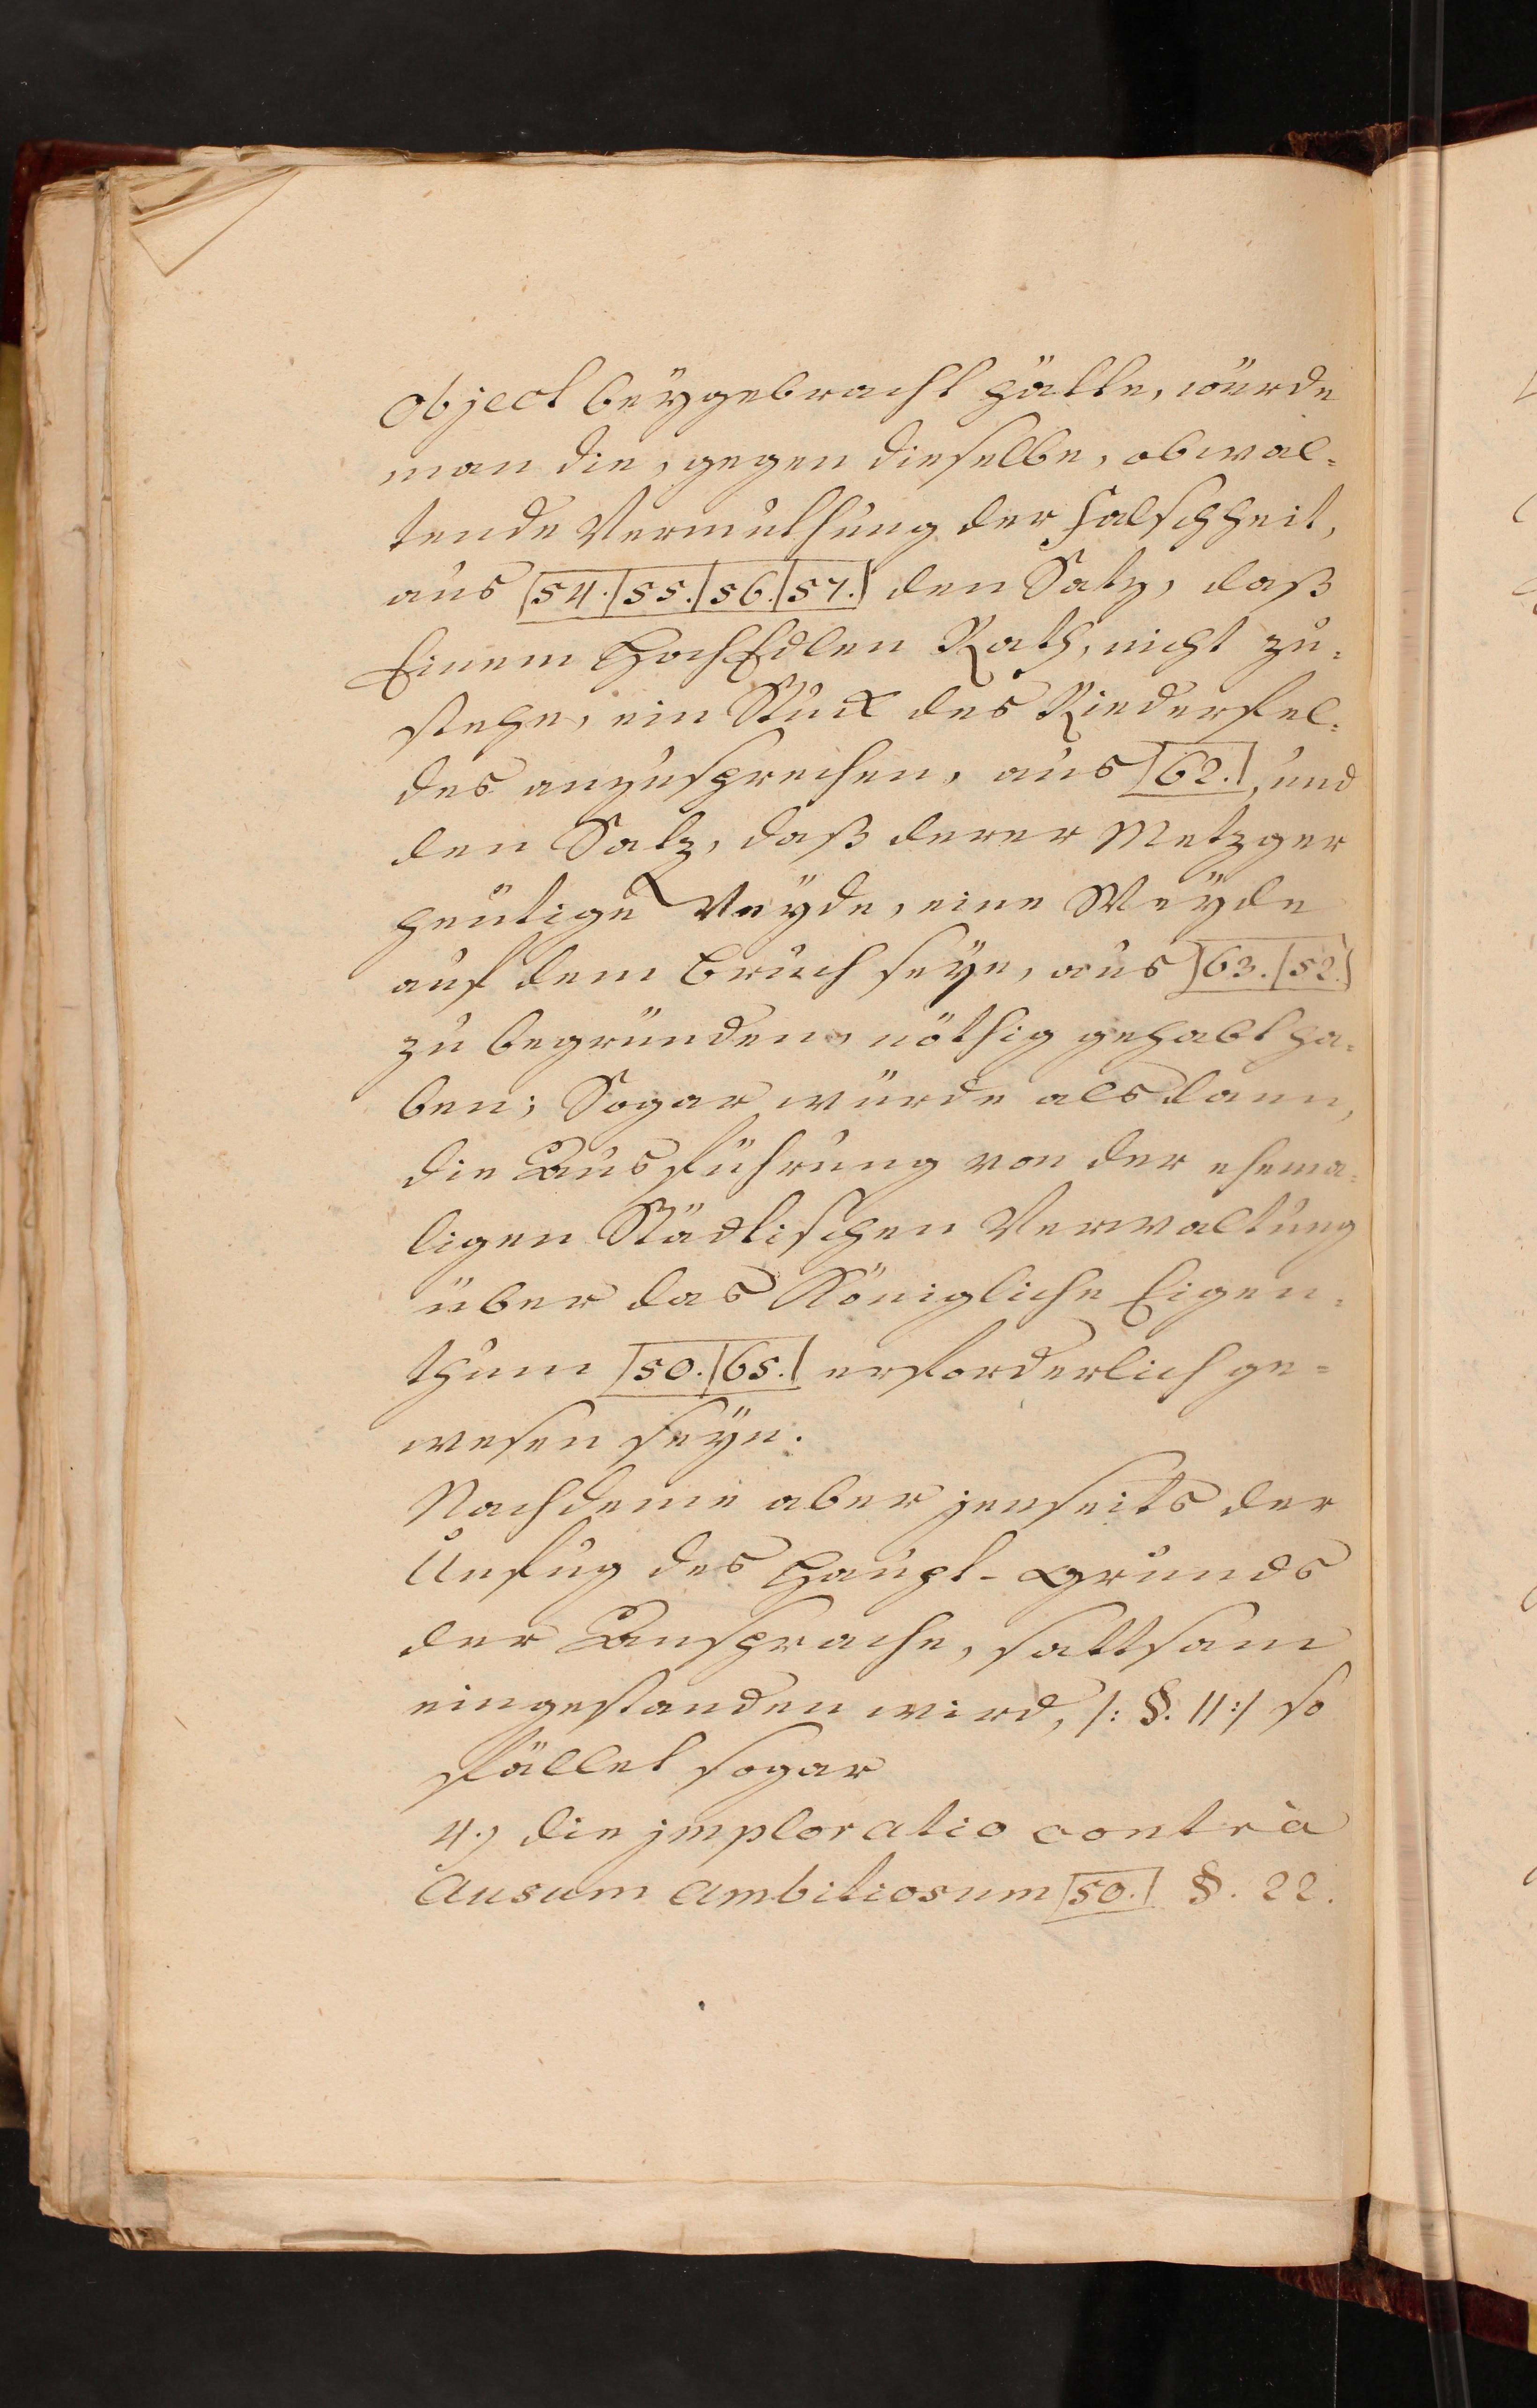 object beÿgebracht hätte, würde
man die, gegen dieselbe, obwal=
tende Vermuthung der Falschheit,
aus |54.|55.|56.|57.| den Satz, daß
Einem HochEdlen Rath, nicht zu=
stehe, ein Stuck des Riederfel=
des anzusprechen, aus |62.|, und
den Satz, daß derer Metzger
heutige Weÿde, eine Weÿde
auf dem Bruch seÿe, aus |63.|52.|
zu begründen, nöthig gehabt ha=
ben; Sogar würde alsdann,
die Ausführung von der ehema=
ligen Städtischen Verwaltung
über das Königliche Eigen=
thum |50.|65.| erforderlich ge=
wesen seÿn.
Nachdeme aber jenseits der
Unfug des Haupt-Grunds
der Ansprache, sattsam
eingestanden wird, /: §. 11 :/ so
fället sogar
4.) die jmploratio contrà
Ausum ambitiosum |50.| §. 22.